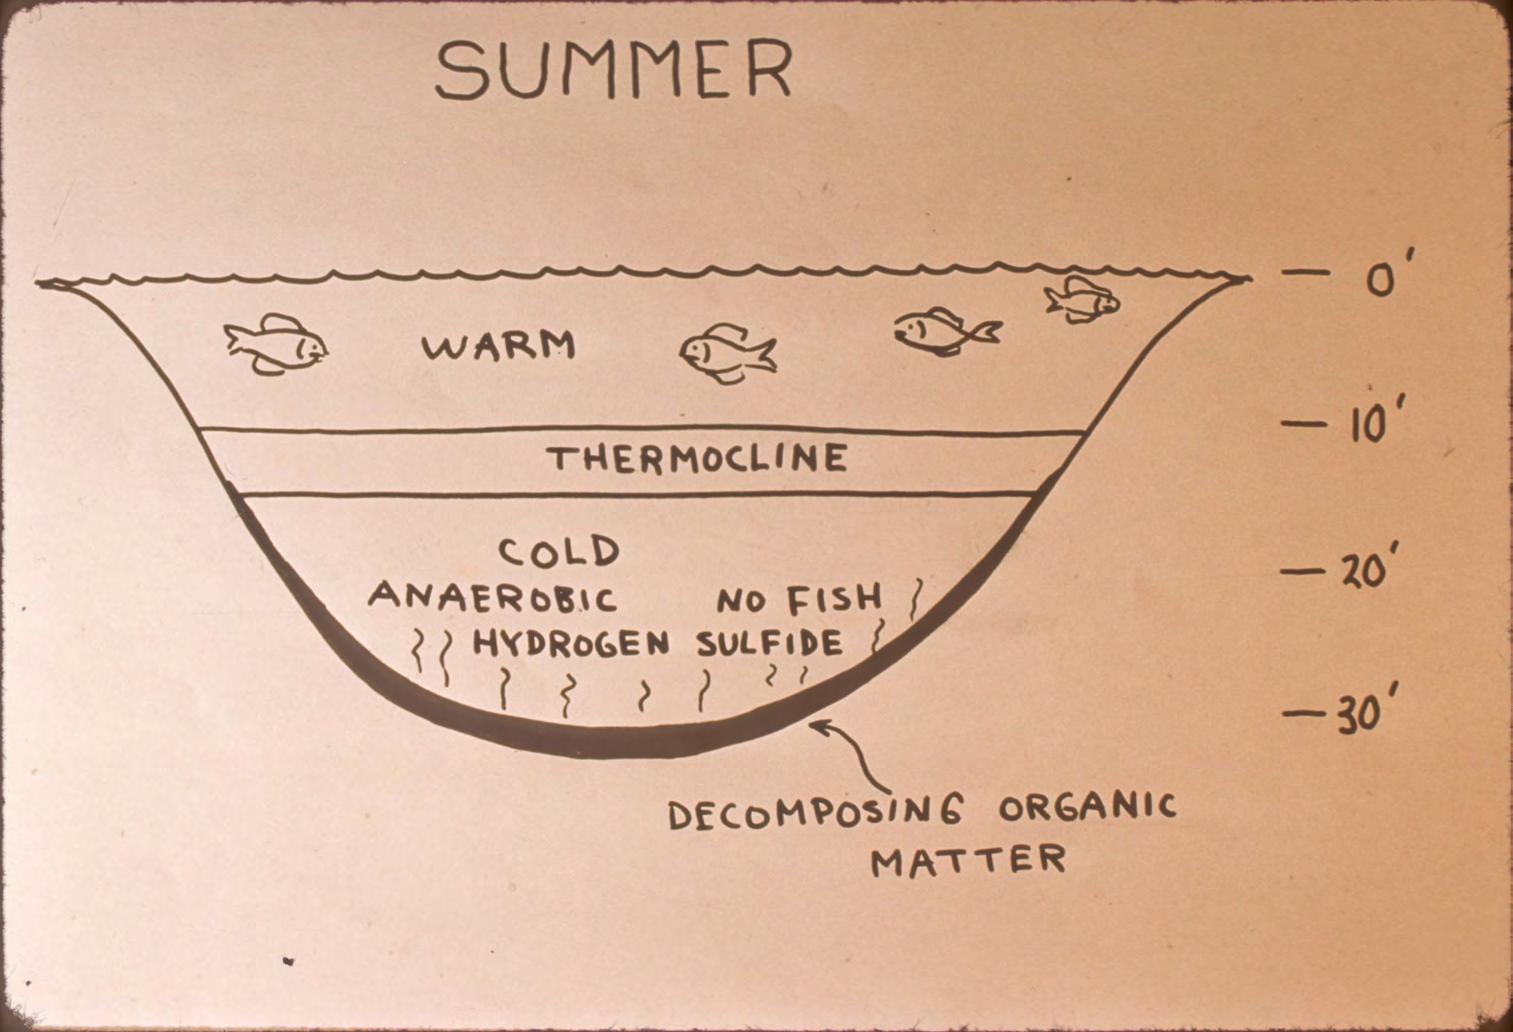 SUMMER
0'
WARM
10'
THERMOCLINE
COLD
20'
ANAEROBIC NO FISH
HYDROGEN SULFIDE
30'
DECOMPOSING ORGANIC
MATTER